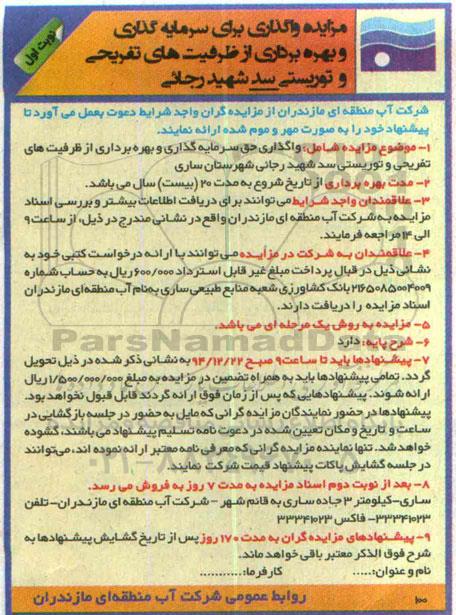 نوبت اول
مزایده واگذاری برای سرمایه گذاری
و بهره برداری از ظرفیت های تفریحی
و توریستی سد شهید رجائی
شرکت آب منطقه ای مازندران از مزایده گران واجد شرایط دعوت بعمل می آورد تا
پیشنهاد خود را به صورت مهر و موم شده ارائه نمایند.
۱- موضوع مزایده شامل: واگذاری حق سرمایه گذاری و بهره برداری از ظرفیت های
تفریحی و توریستی سد شهید رجائی شهرستان ساری
۲- مدت بهره برداری از تاریخ شروع به مدت ۲۰ (بیست) سال می باشد.
۳- علاقمندان واجد شرایط می توانند برای دریافت اطلاعات بیشتر و بررسی اسناد
مزایده به شرکت آب منطقه ای مازندران واقع در نشانی مندرج در ذیل، از ساعت ۹
الی ۱۴ مراجعه فرمایند.
۴- علاقمندان به شرکت در مزایده می توانند با ارائه درخواست کتبی خود به
نشانی ذیل در قبال پرداخت مبلغ غیر قابل استرداد ۶۰۰/۰۰۰ ریال به حساب شماره
۲۱۶۵۰۸۵۰۰۴۰۰۹ بانک کشاورزی شعبه منابع طبیعی ساری به نام آب منطقه ای مازندران
اسناد مزایده را دریافت دارند.
۵- مزایده به روش یک مرحله ای می باشد.
۶- شرح پایه: دارد
۷- پیشنهادها باید تا ساعت ۹ صبح ۹۴/۱۲/۲۲ به نشانی ذکر شده در ذیل تحویل
گردد. تمامی پیشنهادها باید به همراه تضمین در مزایده به مبلغ ۱/۵۰۰/۰۰۰/۰۰۰ ریال
ارائه شوند. پیشنهادهایی که پس از زمان فوق ارائه گردند قابل قبول نخواهد بود.
پیشنهادها در حضور نمایندگان مزایده گرانی که مایل به حضور در جلسه بازگشایی در
ساعت و تاریخ و مکان تعیین شده در دعوت نامه تسلیم پیشنهاد می باشند، گشوده
خواهد شد. تنها نماینده مزایده گرانی که معرفی نامه معتبر ارائه نموده اند، می توانند
در جلسه گشایش پاکات پیشنهاد قیمت شرکت نمایند.
۸- بعد از نوبت دوم اسناد مزایده به مدت ۷ روز به فروش می رسد.
ساری-کیلومتر ۳ جاده ساری به قائم شهر - شرکت آب منطقه ای مازندران- تلفن
۳۳۳۴۱۰۲۳- فاکس ۳۳۳۴۱۰۲۳
۹- پیشنهادهای مزایده گران به مدت ۱۷۰ روز پس از تاریخ گشایش پیشنهادها به
شرح فوق الذکر معتبر باقی خواهد ماند.
نام و عنوان:..... کارفرما:..........
روابط عمومی شرکت آب منطقه ای مازندران
۱۰۰
ParsNamadData